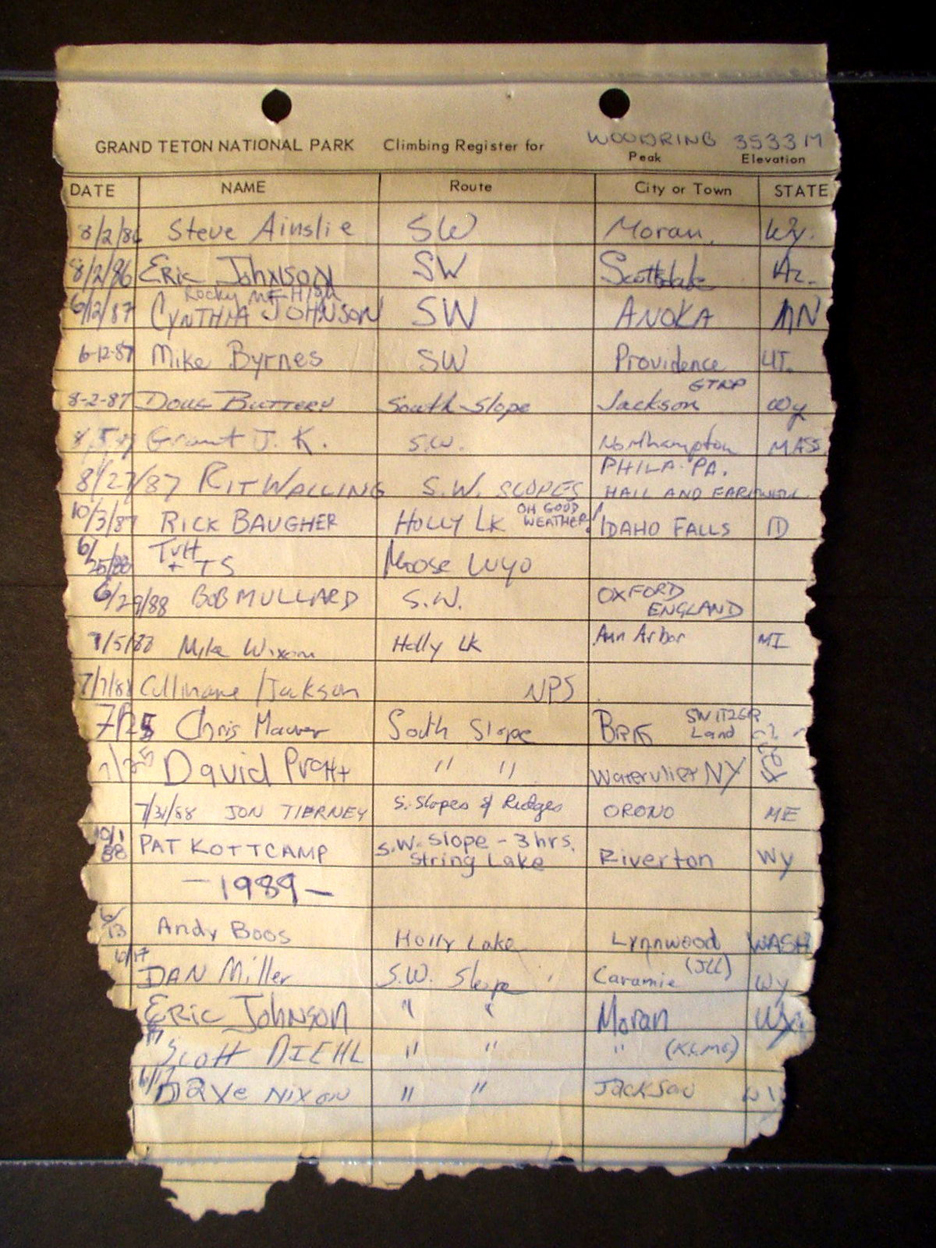 WOODRING 3533 M
GRAND TETON NATIONAL PARK Climbing Register for Peak Elevation
DATE NAME Route City or Town STATE
8/2/86 Steve Ainslie SW Moran, Wy.
8/2/86 Eric Johnson SW Scottsdale Az.
Rocky Mt High
6/12/87 CYNTHIA JOHNSON SW ANOKA MN
6-12-87 Mike Byrnes SW Providence UT.
GTNP
8-2-87 Doug Buttery South Slope Jackson Wy
Grant J. K. S.W. Northampton MASS.
PHILA. PA.
8/27/87 RIT WALLING S.W. SLOPES HAIL AND FAREWELL.
OH GOOD WEATHER!
10/3/87 RICK BAUGHER HOLLY LK IDAHO FALLS ID
6/25/88 + TS Moose
6/29/88 BOB MULLARD S.W. OXFORD ENGLAND
7/5/88 Myke Wixom Holly Lk Ann Arbor MI
7/7/88 Cullinane / Jackson NPS
7/25 Chris Maurer South Slope BRIG SWITZER Land
7/25 David Pratt " " Watervliet NY
7/31/88 JON TIERNEY S. Slopes & Ridges ORONO ME
10/1 88 PAT KOTTCAMP S.W. Slope - 3 hrs. String Lake Riverton Wy
— 1989 —
6/13 Andy Boos Holly Lake Lynnwood WASH
6/17 DAN Miller S.W. Slope Laramie (JLL) Wy
ERIC JOHNSON " " Moran Wy.
SCOTT DIEHL " " "
6/17 Dave NIXON " " JACKSON